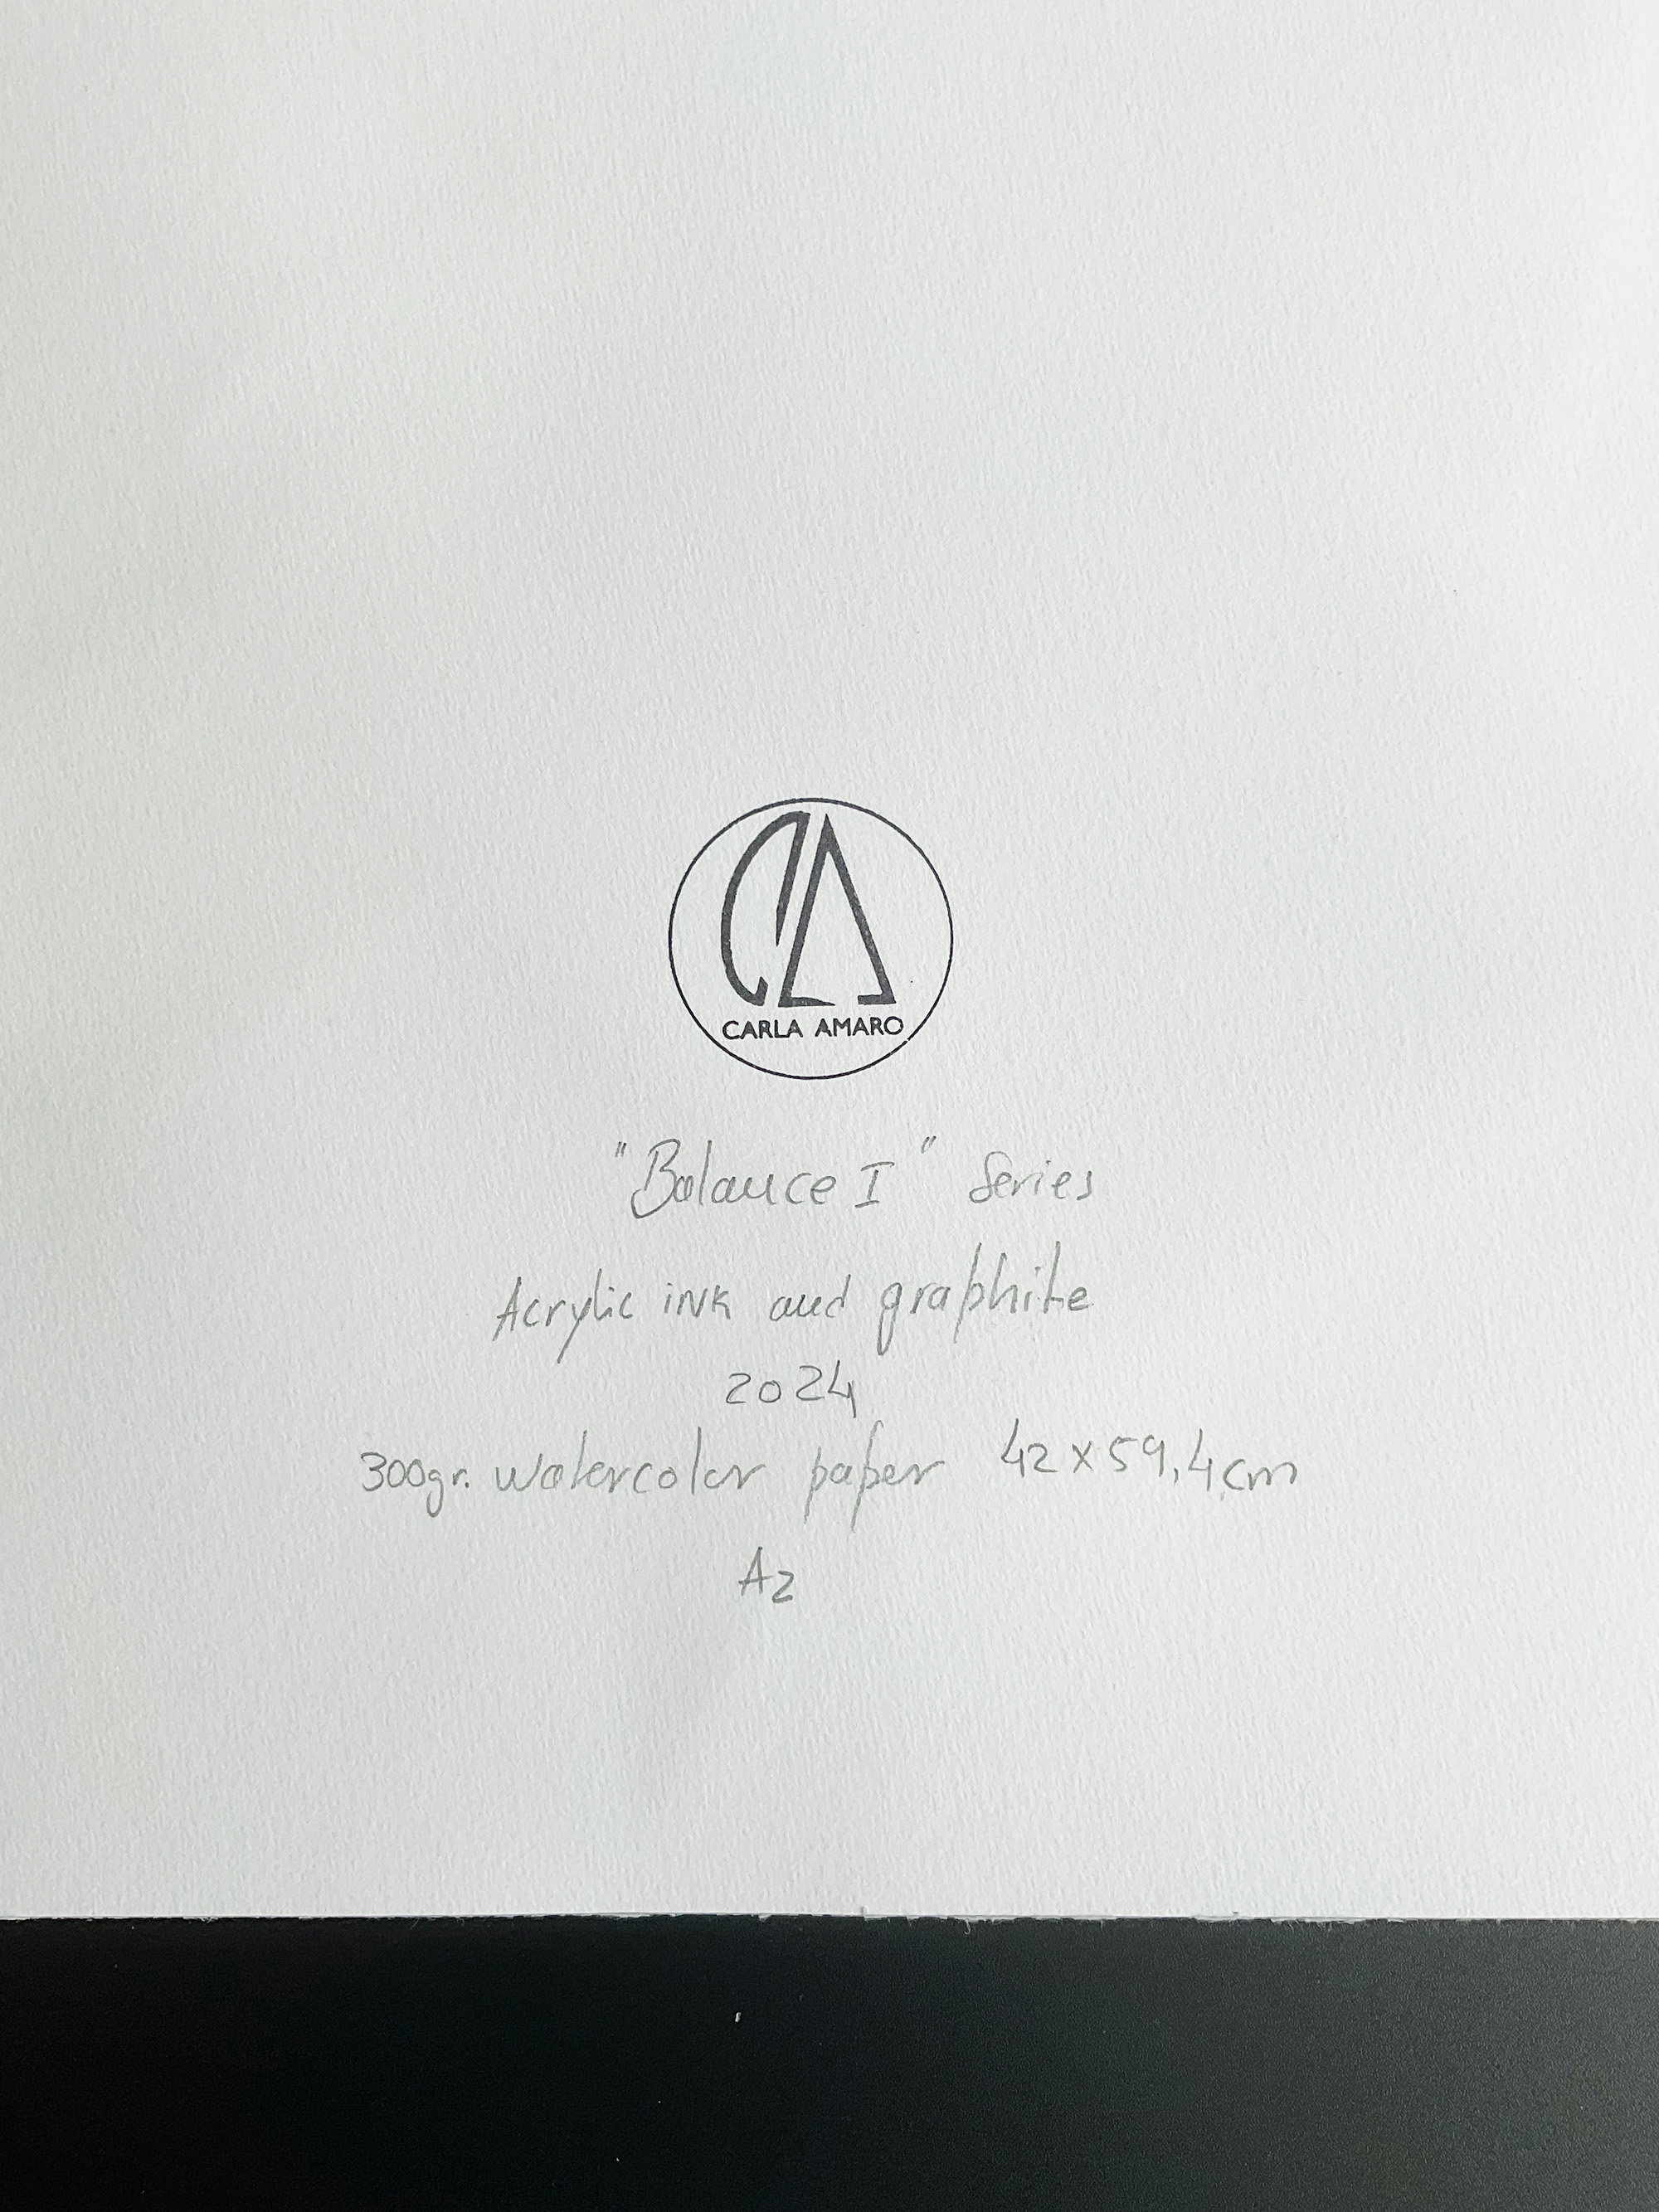 CA
CARLA AMARO
"Balance I" Series
Acrylic ink and graphite
2024
300gr. watercolor paper 42x59,4cm
A2